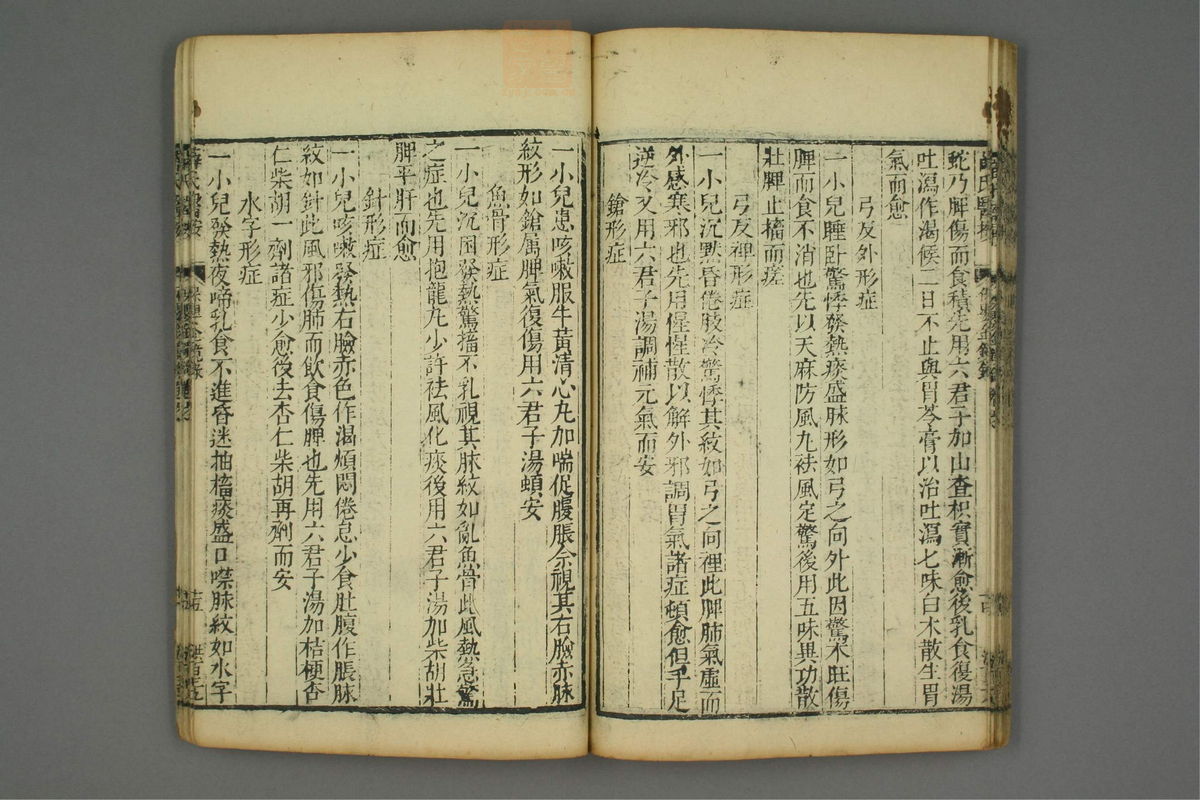 蛇乃脾傷而食積先用六君子加山查枳實漸愈後乳食復湯
吐瀉作渴候二日不止與胃苓膏以治吐瀉七味白木散生胃
氣而愈
弓反外形症
一小兒睡臥驚悸發熱痰盛脉形如弓之向外此因驚木旺傷
脾而食不消也先以天麻防風丸袪風定驚後用五味異功散
壯脾止搐而瘥
弓反裡形症
一小兒沉默昏倦肢冷驚悸其紋如弓之向裡此脾肺氣虛而
外感寒邪也先用惺惺散以解外邪調胃氣諸症頓愈但手足
逆冷又用六君子湯調補元氣而安
鎗形症
一小兒患咳嗽服牛黃清心丸加喘促腹脹余視其右臉赤脉
紋形如鎗属脾氣復傷用六君子湯頓安
魚骨形症
一小兒沉困發熱驚搐不乳視其脉紋如亂魚骨此風熱急驚
之症也先用抱龍丸少許袪風化痰後用六君子湯加柴胡壯
脾平肝而愈
針形症
一小兒咳嗽發熱右臉赤色作渴煩悶倦怠少食肚腹作脹脉
紋如針此風邪傷肺而飲食傷脾也先用六君子湯加桔梗杏
仁柴胡一劑諸症少愈後去杏仁柴胡再劑而安
水字形症
一小兒發熱夜啼乳食不進昏迷抽搐痰盛口噤脉紋如水字